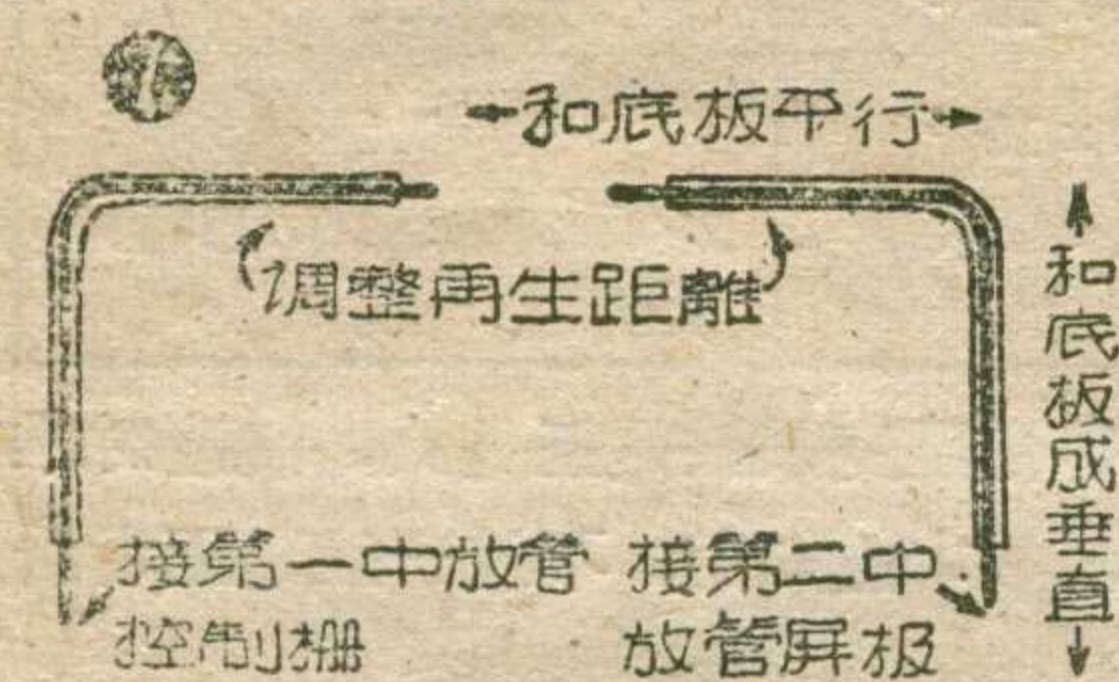 ←和底板平行→
调整再生距離
和底板成垂直
接第一中放管
控制栅
接第二中
放管屏极